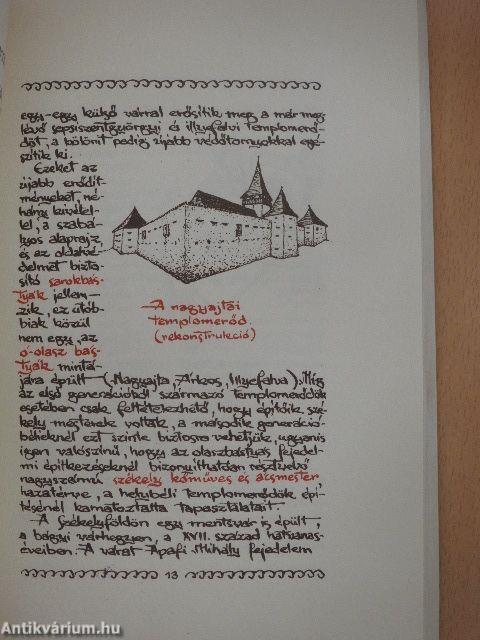 egy-egy külső várral erősítik meg a már meg
lévő sepsiszentgyörgyi és illyefalvi templomerő-
döt, a bölönit pedig újabb védőtornyokkal egé-
szítik ki.
Ezeket az
újabb erődít-
ményeket, né-
hány kivétel-
lel, a szabá-
lyos alaprajz,
és az oldalvé-
delmet bizto-
sító sarokbás-
tyák jellem-
zik, ez utób-
biak közül
nem egy, az
ó-olasz bás-
tyák mintá-
jára épült (Nagyajta, Árkos, Illyefalva). Míg
az első generációtól származó templomerődök
esetében csak feltételezhető, hogy építőik szé-
kely mesterek voltak, a második generáció-
bélieknél ezt szinte biztosra vehetjük, ugyanis
igen valószínű, hogy az olaszbástyás fejedel-
mi építkezéseknél bizonyíthatóan résztvevő
nagyszámú székely kőműves és ácsmester,
hazatérve, a helybéli templomerődök épí-
tésénél kamatoztatta tapasztalatait.
A Székelyföldön egy mentsvár is épült,
a bágyi várhegyen, a XVII. század hatvanas
éveiben. A várat Apafi Mihály fejedelem
A nagyajtai
templomerőd.
(rekonstrukció)
13
Antikvárium.hu